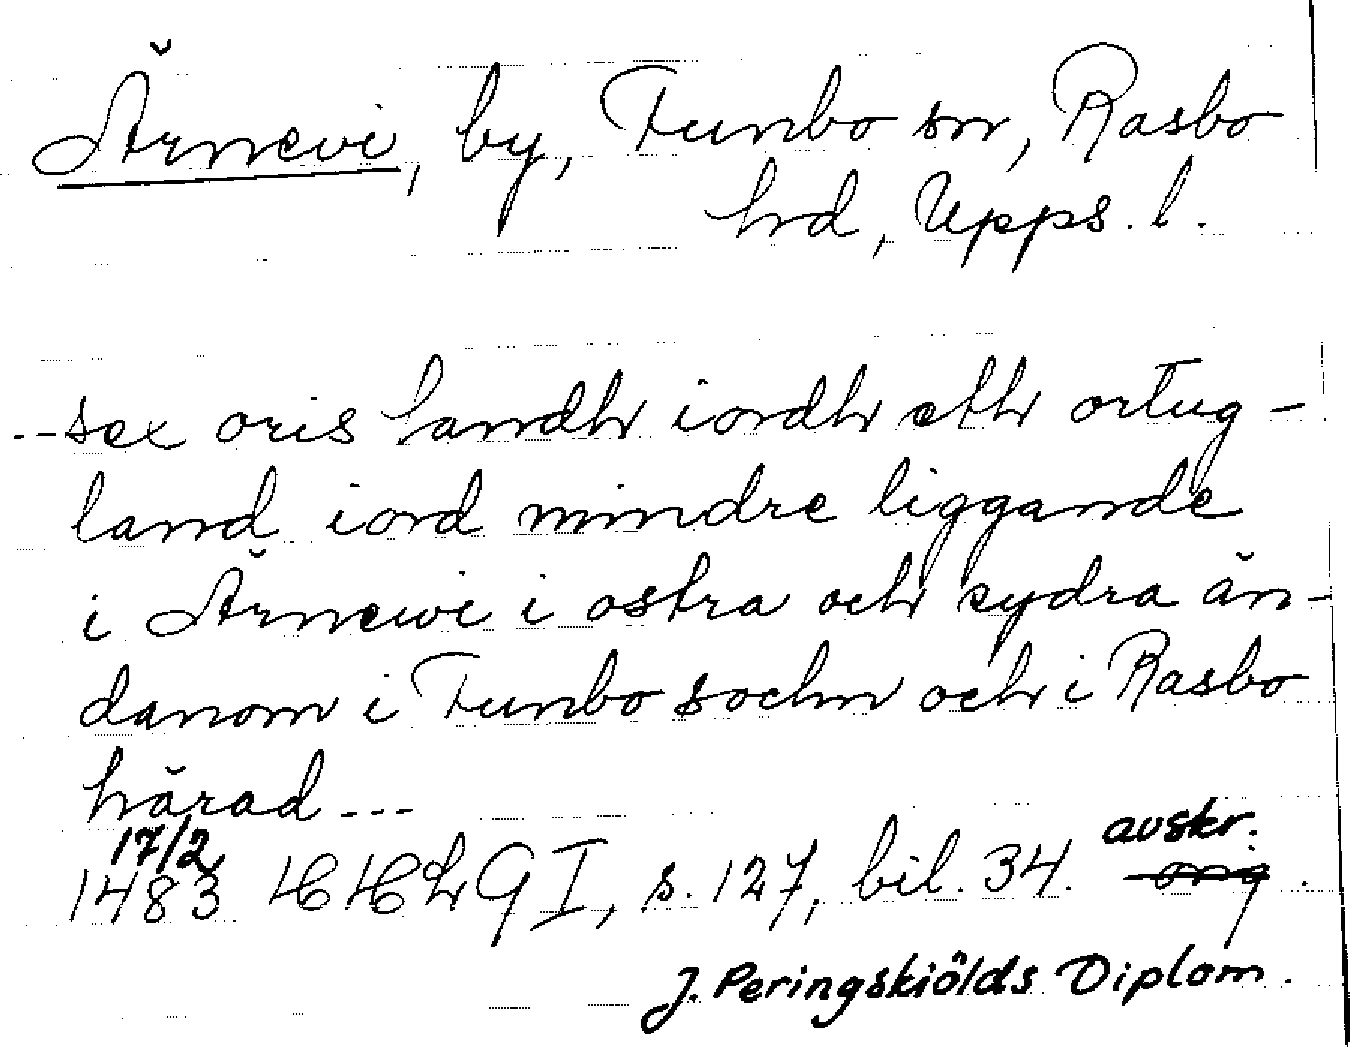 Ärnevi, by, Funbo sn, Rasbo
hd, Upps. l.
--sex oris landh iordh eth ortug-
land iord mindre liggande
i Ärnewi i ostra och sydra än-
danom i Funbo sochn och i Rasbo
härad ---
17/2 avskr.
1483 HHLG I, s. 127, bil. 34. orig.
J. Peringskiölds Diplom.